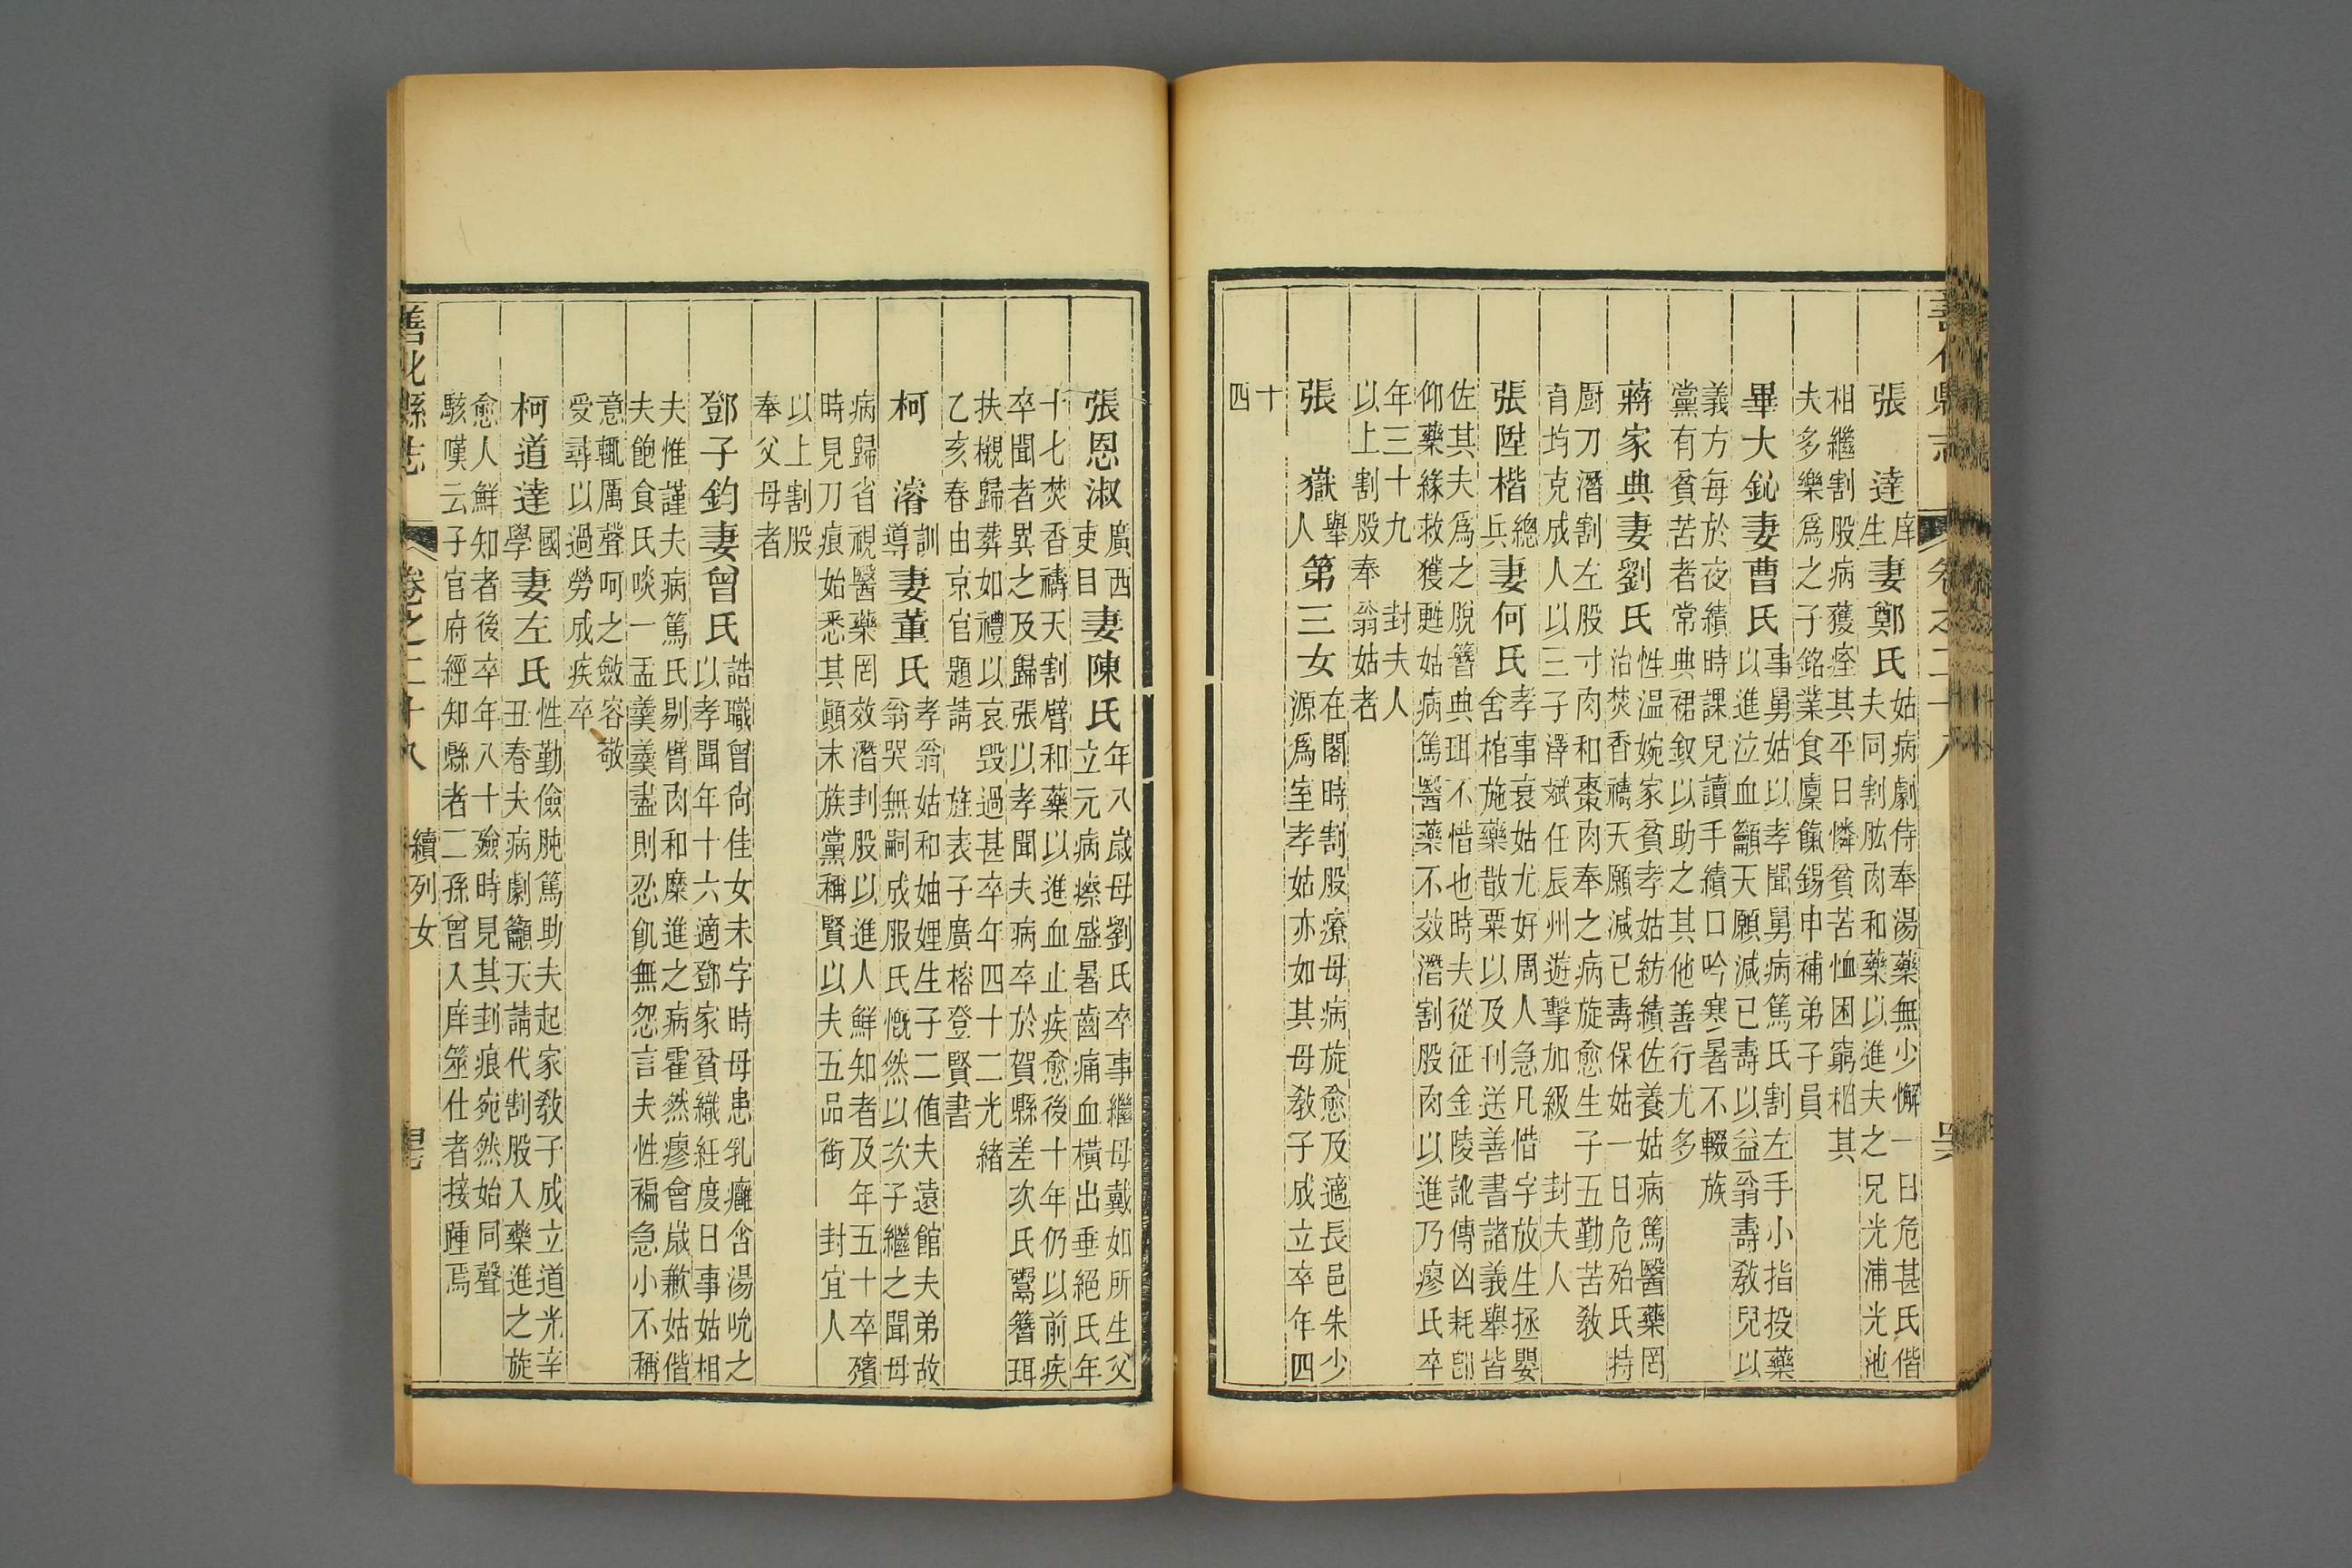 張　達庠生妻鄭氏姑病劇侍奉湯藥無少懈一日危甚氏偕
夫同割肱肉和藥以進夫之兄光浦光池
相繼割股病獲痊其平日憐貧苦恤困窮相其
夫多樂為之子銘業食廩餼錫申補弟子員
畢大釚妻曹氏事舅姑以孝聞舅病篤氏割左手小指投藥
以進泣血籲天願減已壽以益翁壽教兒以
義方每於夜績時課兒讀手績口吟寒暑不輟族
黨有貧苦者常典裙釵以助之其他善行尤多
蔣家典妻劉氏性溫婉家貧孝姑紡績佐養姑病篤醫藥罔
治焚香禱天願減已壽保姑一日危殆氏持
厨刀潛割左股寸肉和棗肉奉之病旋愈生子五勤苦教
育均克成人以三子澤斌任辰州遊擊加級　封夫人
張陞楷總兵妻何氏孝事衰姑尤好周人急凡惜字放生拯嬰
舍棺施藥散粟以及刊送善書諸義舉皆
佐其夫爲之脫簪典珥不惜也時夫從征金陵訛傳凶耗卽
仰藥緣救獲甦姑病篤醫藥不效潛割股肉以進乃瘳氏卒
年三十九　封夫人
以上割股奉翁姑者
張　嶽舉人第三女在閣時割股療母病旋愈及適長邑朱少
源爲室孝姑亦如其母教子成立卒年四
十
四
善化縣志
卷之二十八
張恩淑廣西吏目妻陳氏年八歲母劉氏卒事繼母戴如所生父
立元病瘵盛暑齒痛血橫出垂絕氏年
十七焚香禱天割臂和藥以進血止疾愈後十年仍以前疾
卒聞者異之及歸張以孝聞夫病卒於賀縣差次氏鬻簪珥
扶櫬歸葬如禮以哀毀過甚卒年四十二光緖
乙亥春由京官題請　旌表子廣榕登賢書
柯　濬訓導妻董氏孝翁姑和妯娌生子二値夫遠館夫弟故
翁哭無嗣成服氏慨然以次子繼之聞母
病歸省視醫藥罔效潛刲股以進人鮮知者及年五十卒殯
時見刀痕始悉其顛末族黨稱賢以夫五品銜　封宜人
以上割股
奉父母者
鄧子鈞妻曾氏誥職曾尙佳女未字時母患乳癰含湯吮之
以孝聞年十六適鄧家貧織紝度日事姑相
夫惟謹夫病篤氏剔臂肉和糜進之病霍然瘳會歲歉姑偕
夫飽食氏啖一盂羹羹盡則忍飢無怨言夫性褊急小不稱
意輒厲聲呵之斂容敬
受尋以過勞成疾卒
柯道達國學妻左氏性勤儉肫篤助夫起家教子成立道光辛
丑春夫病劇籲天請代割股入藥進之旋
愈人鮮知者後卒年八十殮時見其刲痕宛然始同聲
駭嘆云子官府經知縣者二孫曾入庠筮仕者接踵焉
善化縣志
卷之二十八
續列女